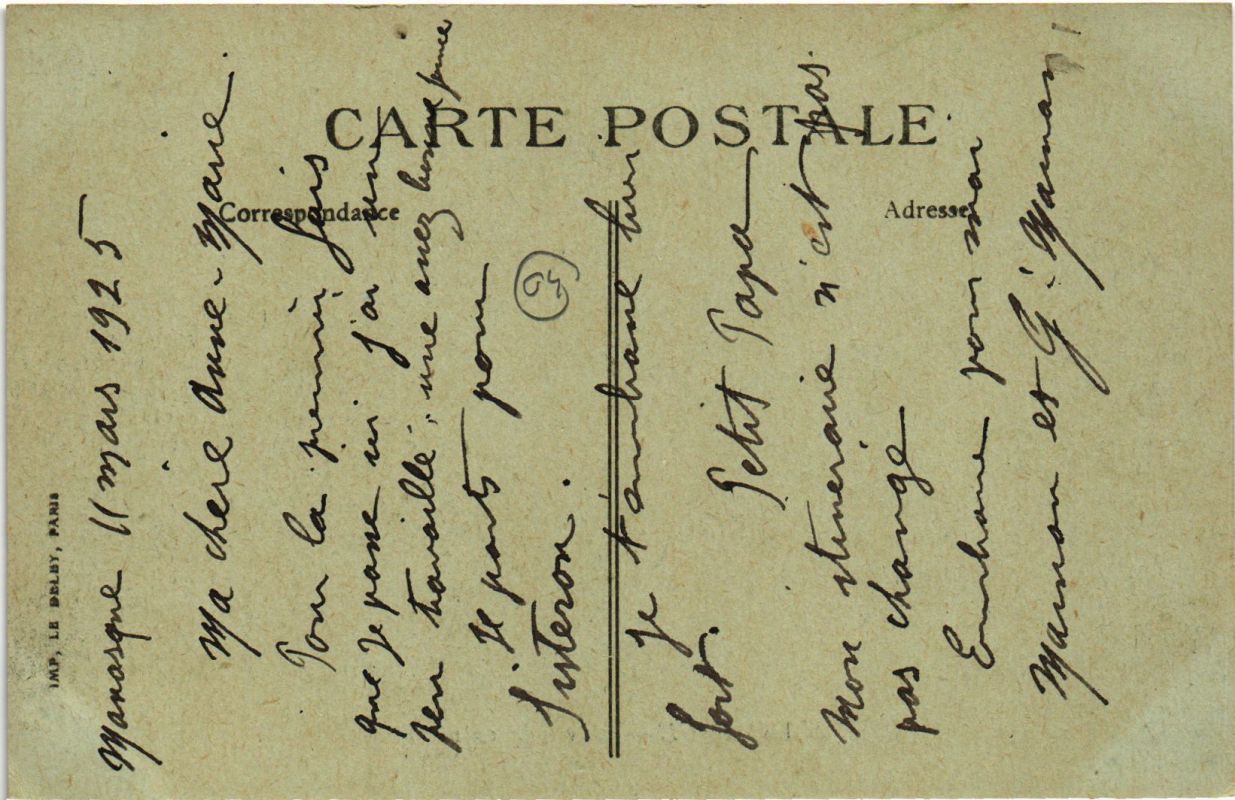 CARTE POSTALE
Correspondance
Adresse
IMP, LE DELEY, PARIS
Manosque 11 mars 1925
Ma chère Anne-Marie.
Pour la première fois
que je passe ici j'ai un
peu travaillé ; une assez bonne
Je parts pour
Sisteron.
94
Je t'embrasse bien
fort.
Petit Papa
Mon itineraire n'est pas
pas changé
Embrasse pour moi
Maman et G. Maman